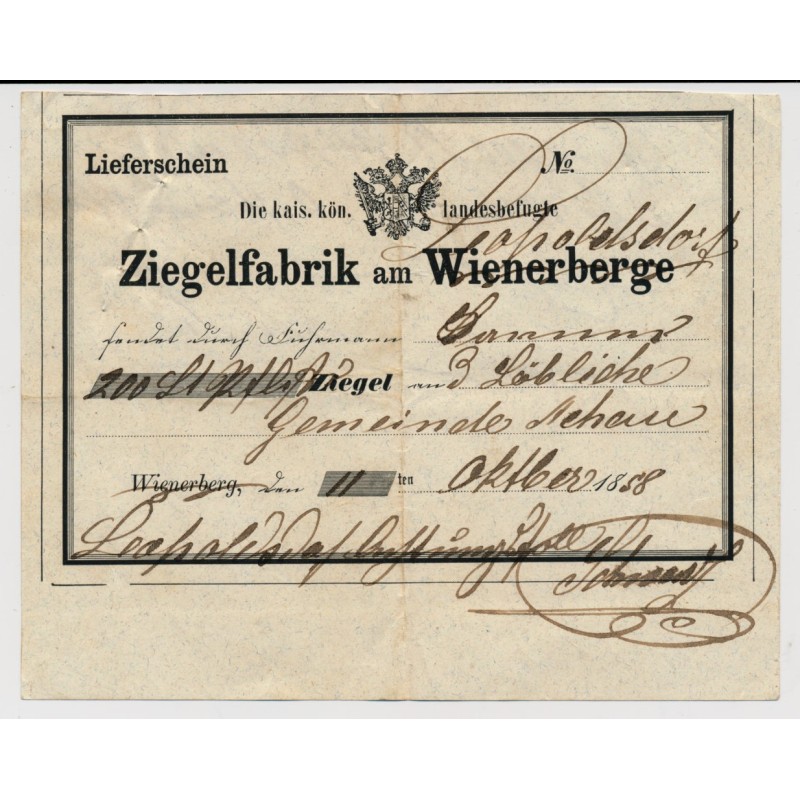 Lieferschein No.
Die kais. kön. landesbefugte
Leopoldsdorf
Ziegelfabrik am Wienerberge
sendet durch Fuhrmann
200 St Ziegel an Löbliche
Gemeinde
Wienerberg, den 11ten Oktber 1858
Leopoldsdorf